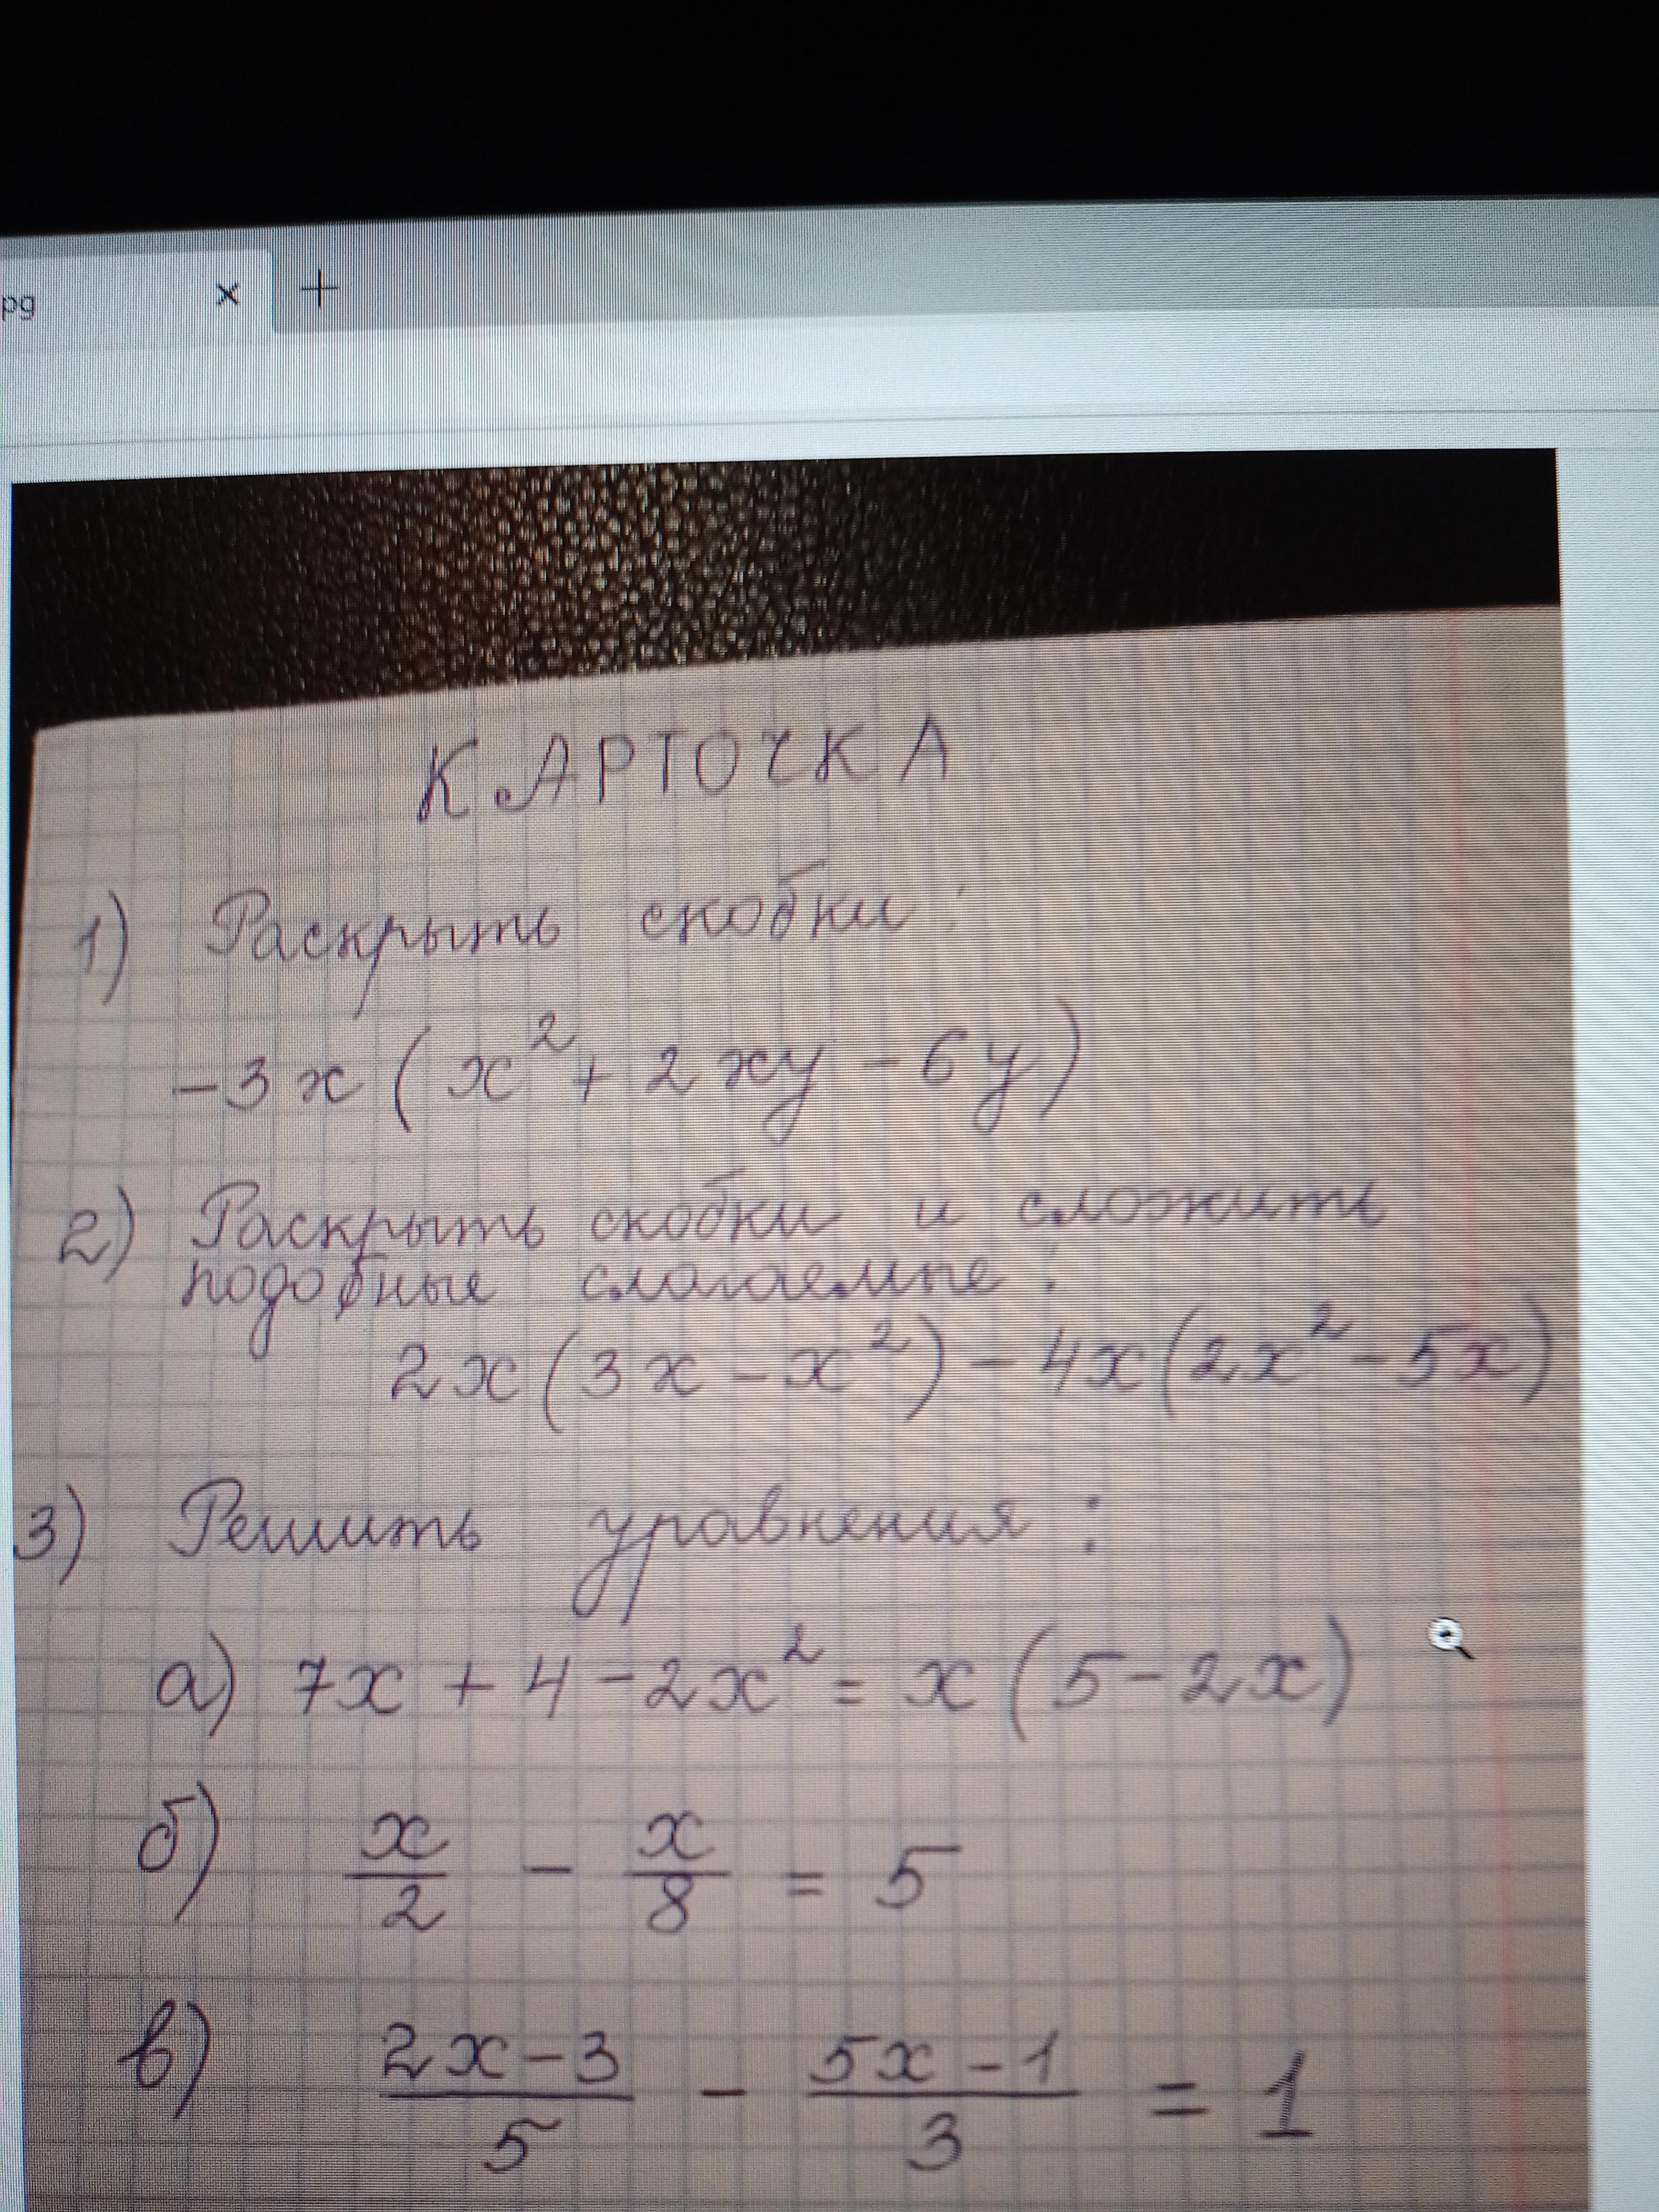 pg × +
КАРТОЧКА
1) Раскрыть скобки:
-3x(x²+2xy-6y)
2) Раскрыть скобки и сложить
подобные слагаемые:
2x(3x-x²)-4x(2x²-5x)
3) Решить уравнения:
а) 7x+4-2x²=x(5-2x)
б) x/2 - x/8 = 5
в) (2x-3)/5 - (5x-1)/3 = 1